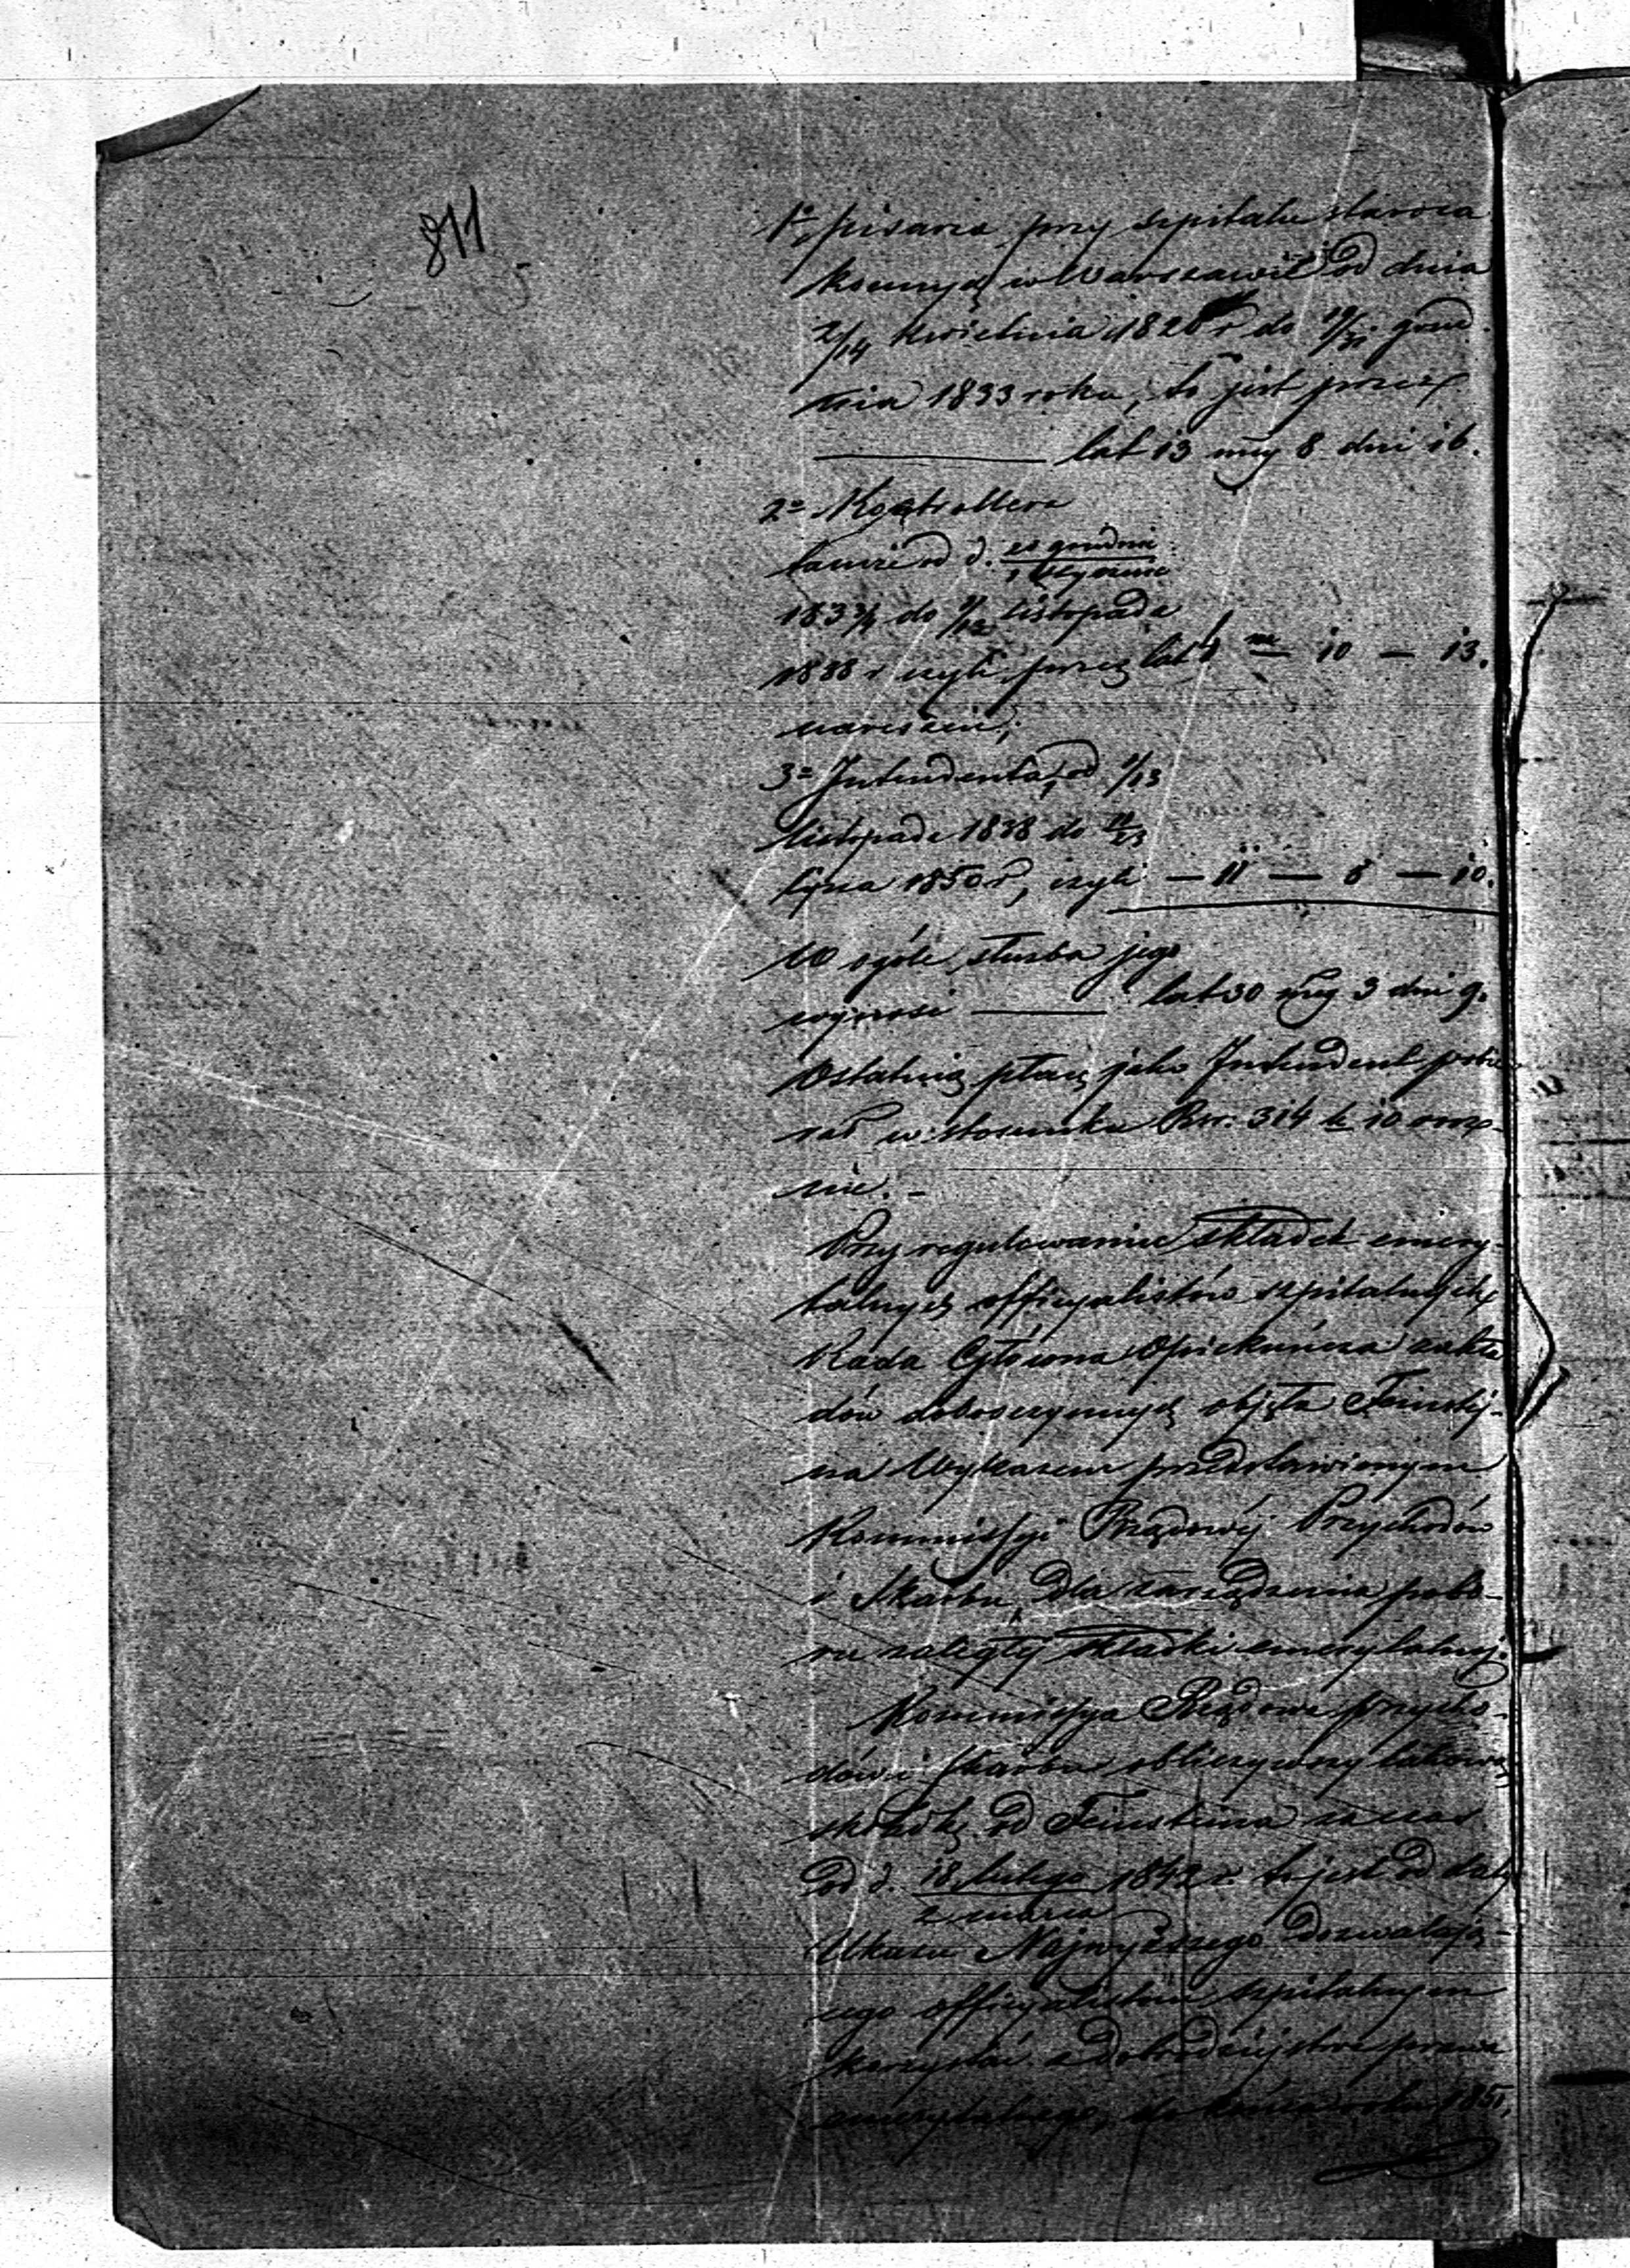 811
1º, pisarza przy szpitalu staroza
konnych w Warszawie od dnia
2/14 kwietnia 1820 r do 19/31 grud
nia 1833 roku, to jest przez
lat 13 mcy 8 dni 16.
2º Kontrollera
tamże od d. 20 grudnia
1 stycznia
1833/4 do 1/13 listopada
1838 r czyli przez lat 4 m — 10 — 13.
nareszcie;
3º Intendenta, od 1/13
listopada 1838 do 11/23
lipca 1850 r, czyli — 11 — 8 — 10.
W ogóle służba jego
wynosi lat 30 mcy 3 dni 9.
Ostatnią płacę jako Intendent pobie
rał w stosunku Rsr. 314 k 10 rocz-
nie. –
Przy regulowaniu składek emery-
talnych officyalistów szpitalnych
Rada Główna Opiekuńcza zakła
dów dobroczynnych objęła Feinstej-
na Wykazem przedstawionym
Kommissyi Rządowej Przychodów
i Skarbu dla zarządzenia pobo-
ru zaległej składki emerytalnej.
Kommissya Rządowa przycho-
dów i Skarbu obliczywszy takową
składkę od Feinsteina za czas
od d. 18 lutego 1842 r. to jest od daty
2 marca
Ukazu Najwyższego dozwalają-
cego officyalistom szpitalnym
korzystać z dobrodziejstwa prawa
emerytalnego, do końca roku 1851,